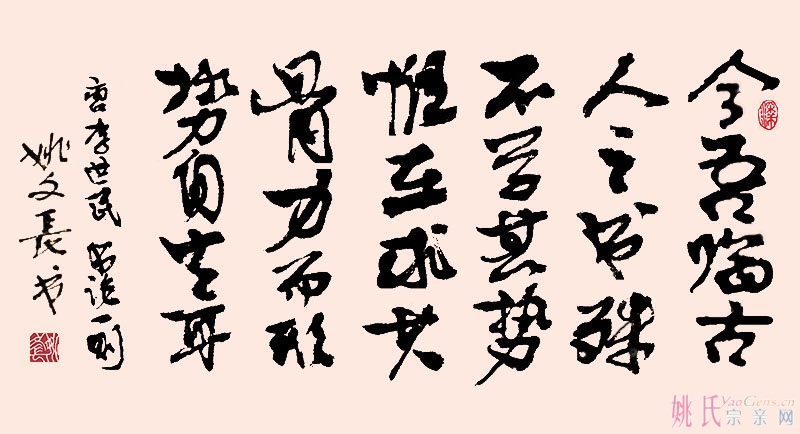 今吾临古
人之书殊
不学其势
惟在求其
骨力而形
势自生耳
唐李世民书论一则
姚文长书
姚氏宗亲网
YaoGens.cn